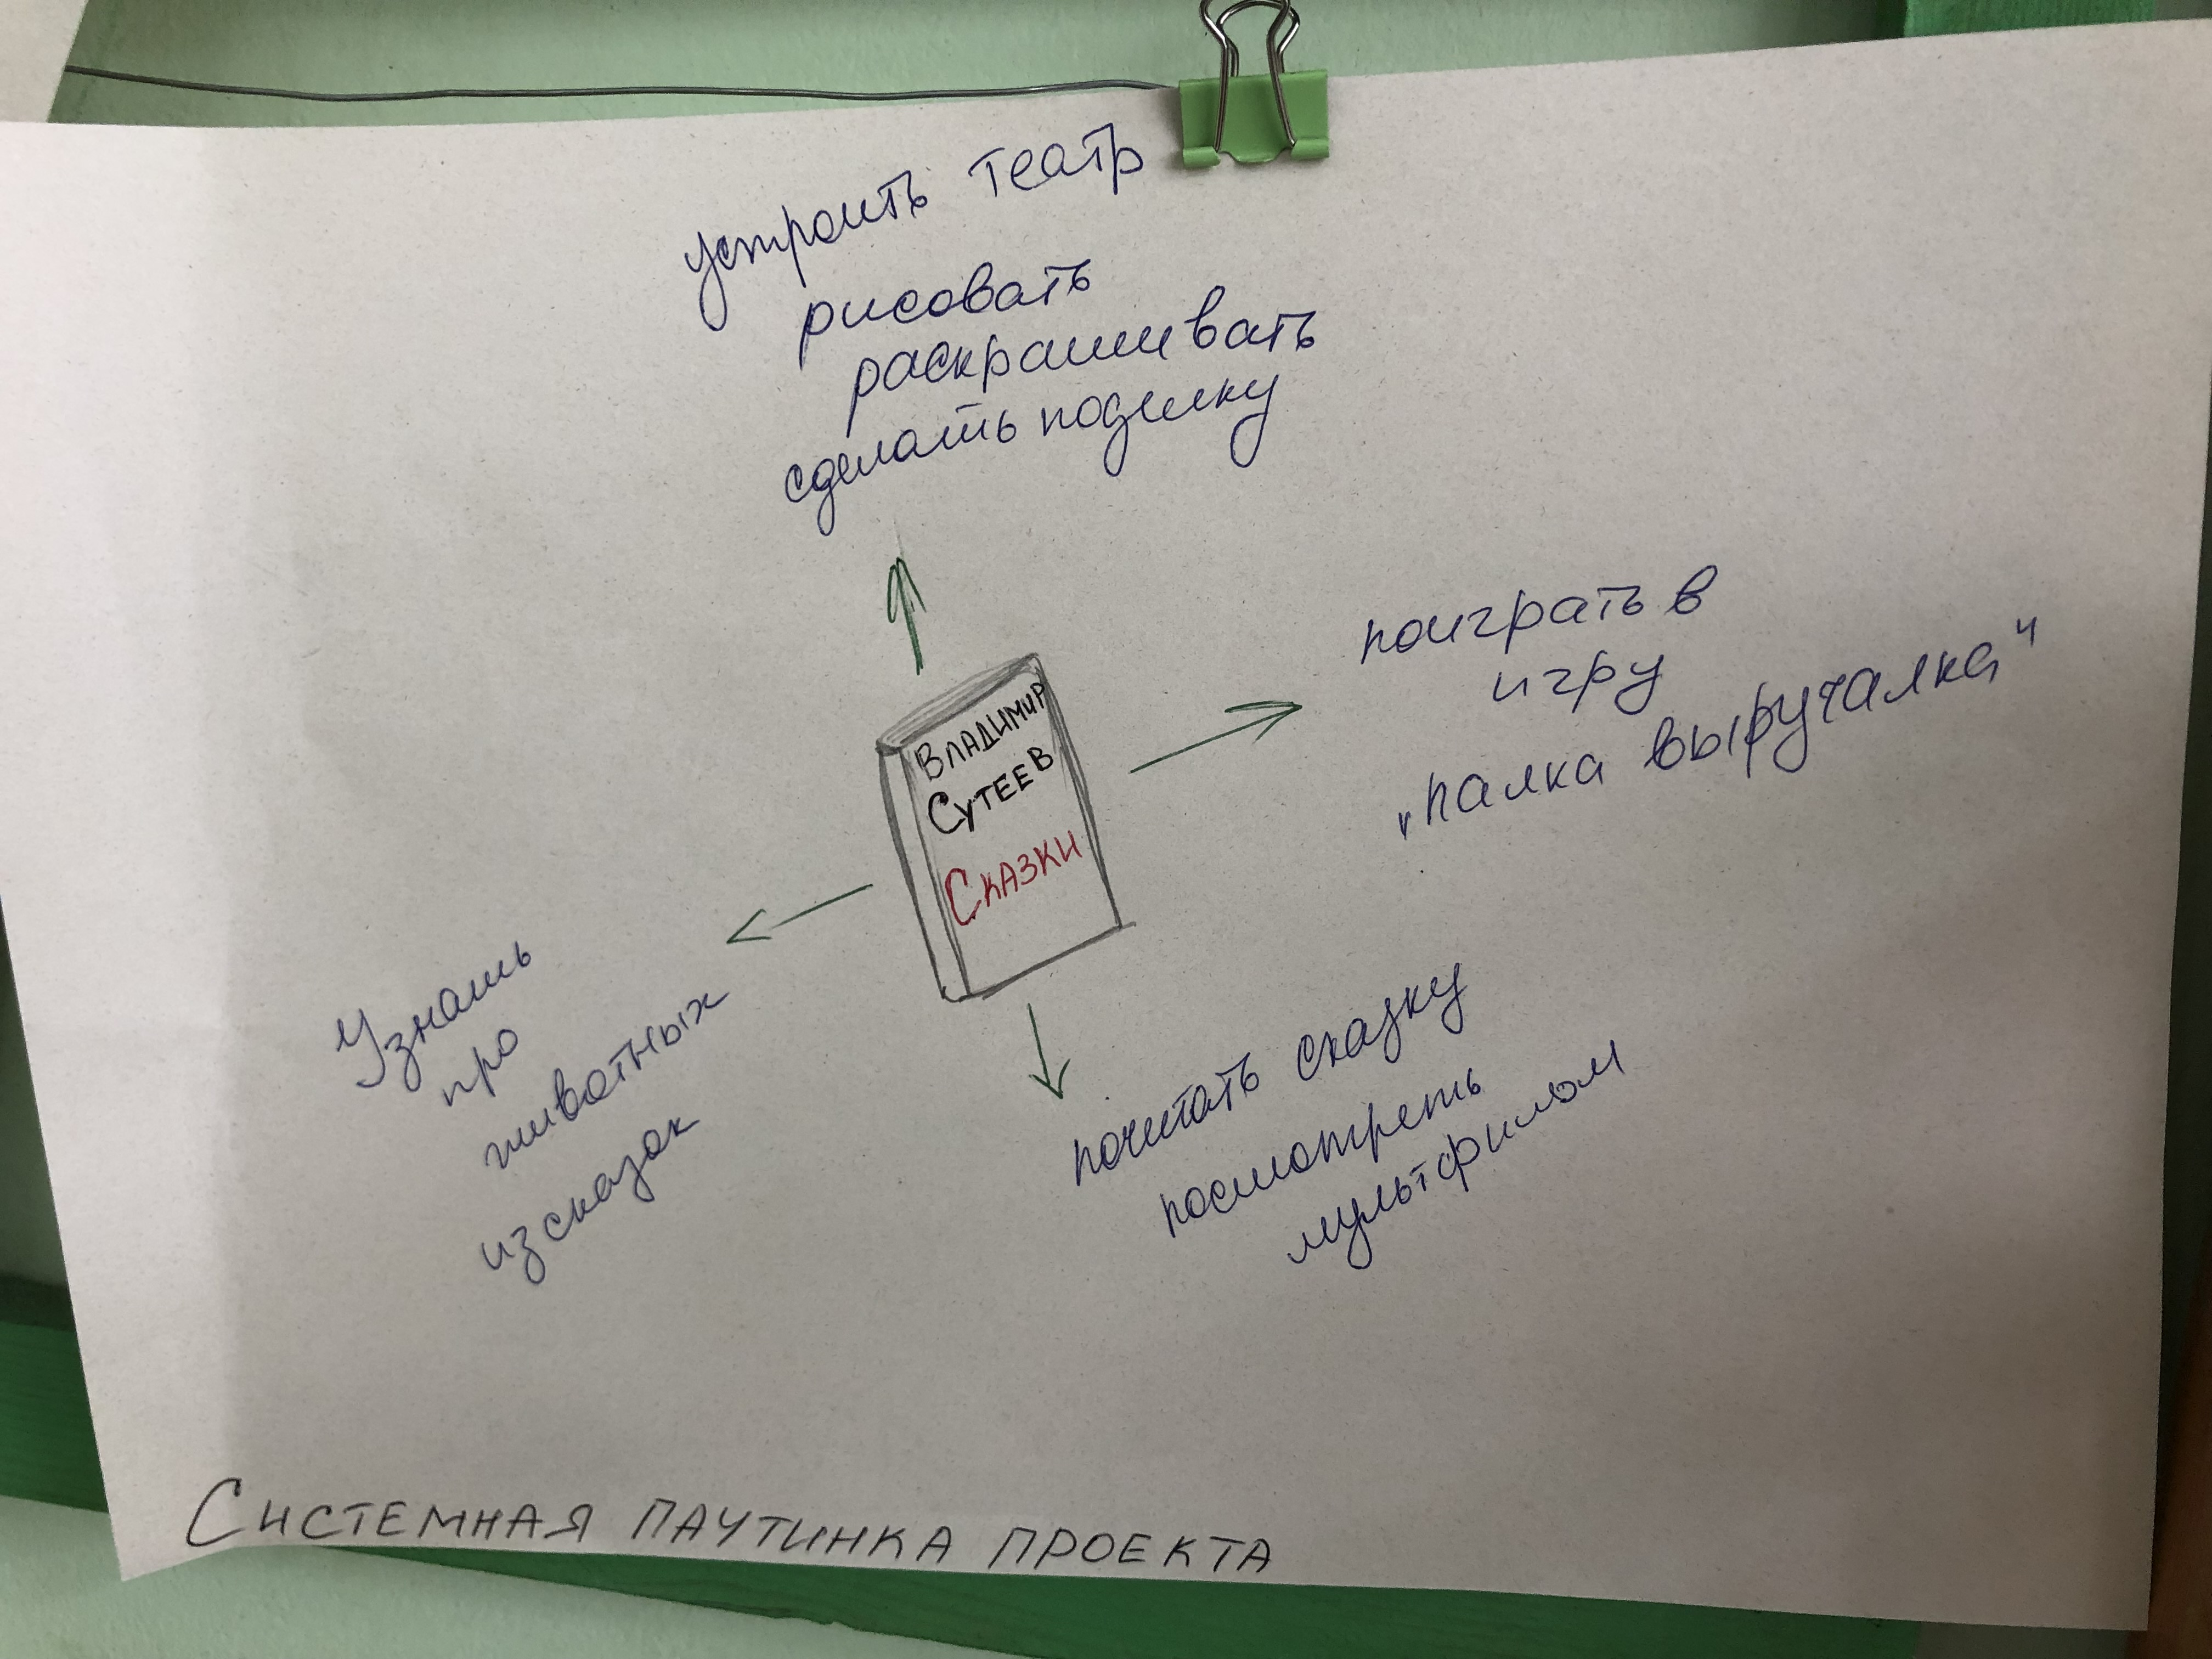 устроить театр
рисовать
раскрашивать
сделать поделку
поиграть в
игру
"палка выручалка"
Владимир
Сутеев
Сказки
Узнать
про
животных
из сказок
почитать сказку
посмотреть
мультфильм
Системная паутинка проекта